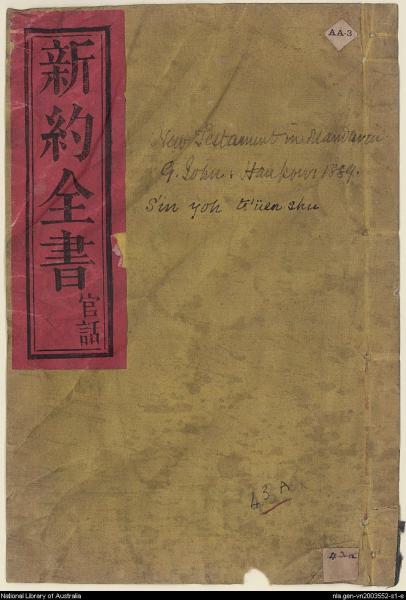 新約全書
官話
AA-3
New Testament in Mandarin
G. John. Hankow 1889.
Sin yoh ts'üen shu
43A
43a
National Library of Australia
nla.gen-vn2003552-s1-e